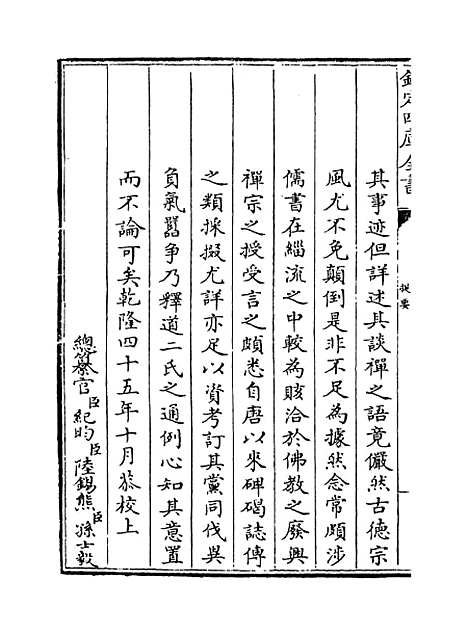 欽定四庫全書
提要
其事迹但詳述其談禪之語竟儼然古德宗
風尤不免顛倒是非不足為據然念常頗涉
儒書在緇流之中較為賅洽於佛教之廢興
禪宗之授受言之頗悉自唐以來碑碣誌傳
之類採掇尤詳亦足以資考訂其黨同伐異
負氣囂爭乃釋道二氏之通例心知其意置
而不論可矣乾隆四十五年十月恭校上
總纂官臣紀昀臣陸錫熊臣孫士毅